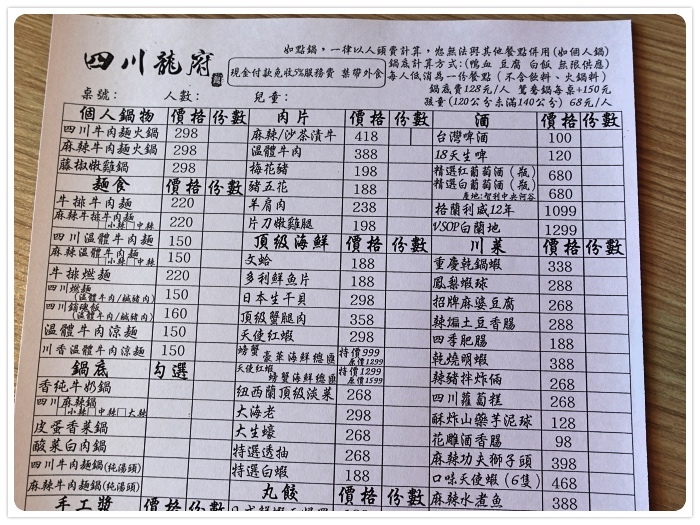 四川龍府
現金付款免收5%服務費 禁帶外食
如點鍋,一律以人頭費計算,恕無法與其他餐點併用(如個人鍋)
鍋底計算方式:(鴨血 豆腐 白飯 無限供應)
每人低消為一份餐點 (不含飲料、火鍋料)
鍋底費128元/人 鴛鴦鍋每桌+150元
孩童(120公分未滿140公分) 68元/人
桌號: 人數: 兒童:
個人鍋物 價格 份數
四川牛肉麵火鍋 298
麻辣牛肉麵火鍋 298
藤椒嫩雞鍋 298
麵食 價格 份數
牛排牛肉麵 220
麻辣牛排牛肉麵 220
小辣 中辣
四川溫體牛肉麵 150
麻辣溫體牛肉麵 150
小辣 中辣
牛排燃麵 220
四川燃麵 150
(溫體牛肉/鹹豬肉)
四川鍋魂飯 160
(溫體牛肉/鹹豬肉)
溫體牛肉涼麵 150
川香溫體牛肉涼麵 150
鍋底 勾選
香純牛奶鍋
四川麻辣鍋
小辣 中辣 大辣
皮蛋香菜鍋
酸菜白肉鍋
四川牛肉麵鍋(純湯頭)
麻辣牛肉麵鍋(純湯頭)
手工漿 價格 份數
肉片 價格 份數
麻辣/沙茶漬牛 418
溫體牛肉 388
梅花豬 198
豬五花 188
羊肩肉 238
片刀嫩雞腿 198
頂級海鮮 價格 份數
文蛤 188
多利鮮魚片 188
日本生干貝 298
頂級蟹腿肉 358
天使紅蝦 298
螃蟹 特價999
豪華海鮮總匯 原價1299
天使紅蝦 特價1299
螃蟹海鮮總匯 原價1599
紐西蘭頂級淡菜 268
大海老 298
大生蠔 268
特選透抽 268
特選白蝦 188
丸餃 價格 份數
酒 價格 份數
台灣啤酒 100
18天生啤 120
精選紅葡萄酒(瓶) 680
精選白葡萄酒(瓶) 680
產地:智利中央河谷
格蘭利威12年 1099
VSOP白蘭地 1299
川菜 價格 份數
重慶乾鍋蝦 338
鳳梨蝦球 288
招牌麻婆豆腐 268
辣煸土豆香腸 288
四季肥腸 188
乾燒明蝦 388
辣豬拌炸倆 268
四川蘿蔔糕 268
酥炸山藥芋泥球 128
花雕酒香腸 98
麻辣功夫獅子頭 398
口味天使蝦(6隻) 468
麻辣水煮魚 388